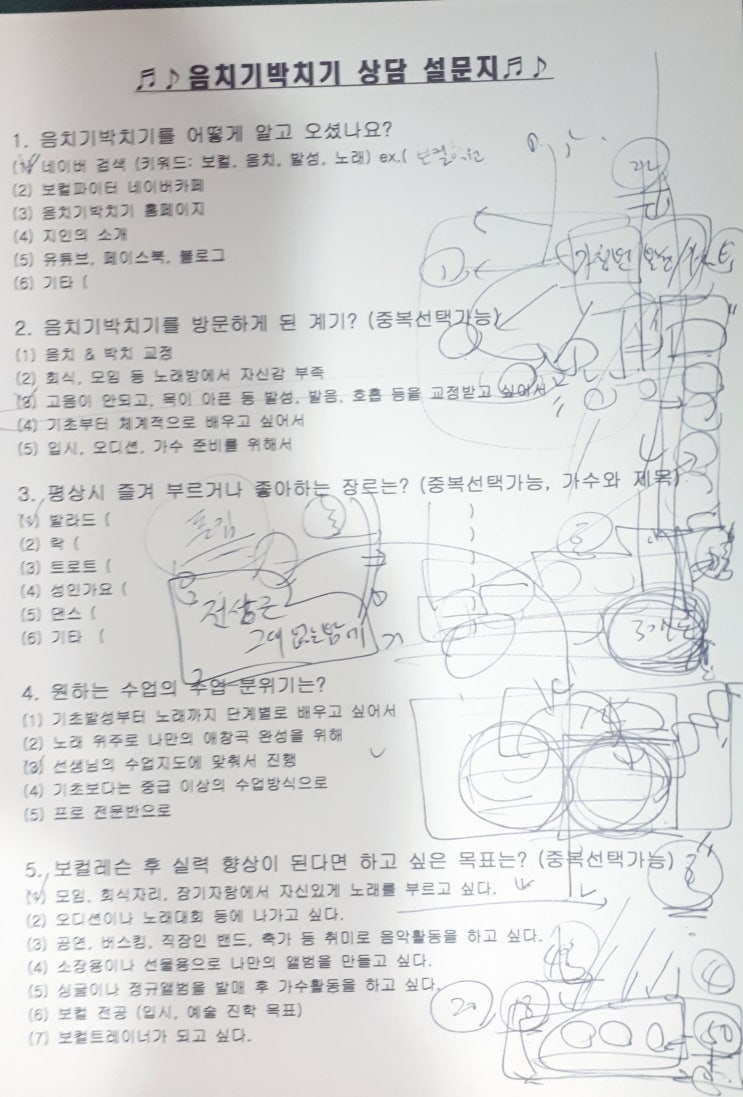 ♬♪음치기박치기 상담 설문지♬♪
1. 음치기박치기를 어떻게 알고 오셨나요?
(1) 네이버 검색 (키워드: 보컬, 음치, 발성, 노래) ex.(
(2) 보컬파이터 네이버카페
(3) 음치기박치기 홈페이지
(4) 지인의 소개
(5) 유튜브, 페이스북, 블로그
(6) 기타 (
2. 음치기박치기를 방문하게 된 계기? (중복선택가능)
(1) 음치 & 박치 교정
(2) 회식, 모임 등 노래방에서 자신감 부족
(3) 고음이 안되고, 목이 아픈 등 발성, 발음, 호흡 등을 교정받고 싶어서
(4) 기초부터 체계적으로 배우고 싶어서
(5) 입시, 오디션, 가수 준비를 위해서
3. 평상시 즐겨 부르거나 좋아하는 장르는? (중복선택가능, 가수와 제목)
(1) 발라드 (
(2) 락 (
(3) 트로트 (
(4) 성인가요 (
(5) 댄스 (
(6) 기타 (
폴킴
전상근
그대 없는 밤에
4. 원하는 수업의 수업 분위기는?
(1) 기초발성부터 노래까지 단계별로 배우고 싶어서
(2) 노래 위주로 나만의 애창곡 완성을 위해
(3) 선생님의 수업지도에 맞춰서 진행
(4) 기초보다는 중급 이상의 수업방식으로
(5) 프로 전문반으로
5. 보컬레슨 후 실력 향상이 된다면 하고 싶은 목표는? (중복선택가능)
(1) 모임, 회식자리, 장기자랑에서 자신있게 노래를 부르고 싶다.
(2) 오디션이나 노래대회 등에 나가고 싶다.
(3) 공연, 버스킹, 직장인 밴드, 축가 등 취미로 음악활동을 하고 싶다.
(4) 소장용이나 선물용으로 나만의 앨범을 만들고 싶다.
(5) 싱글이나 정규앨범을 발매 후 가수활동을 하고 싶다.
(6) 보컬 전공 (입시, 예술 진학 목표)
(7) 보컬트레이너가 되고 싶다.